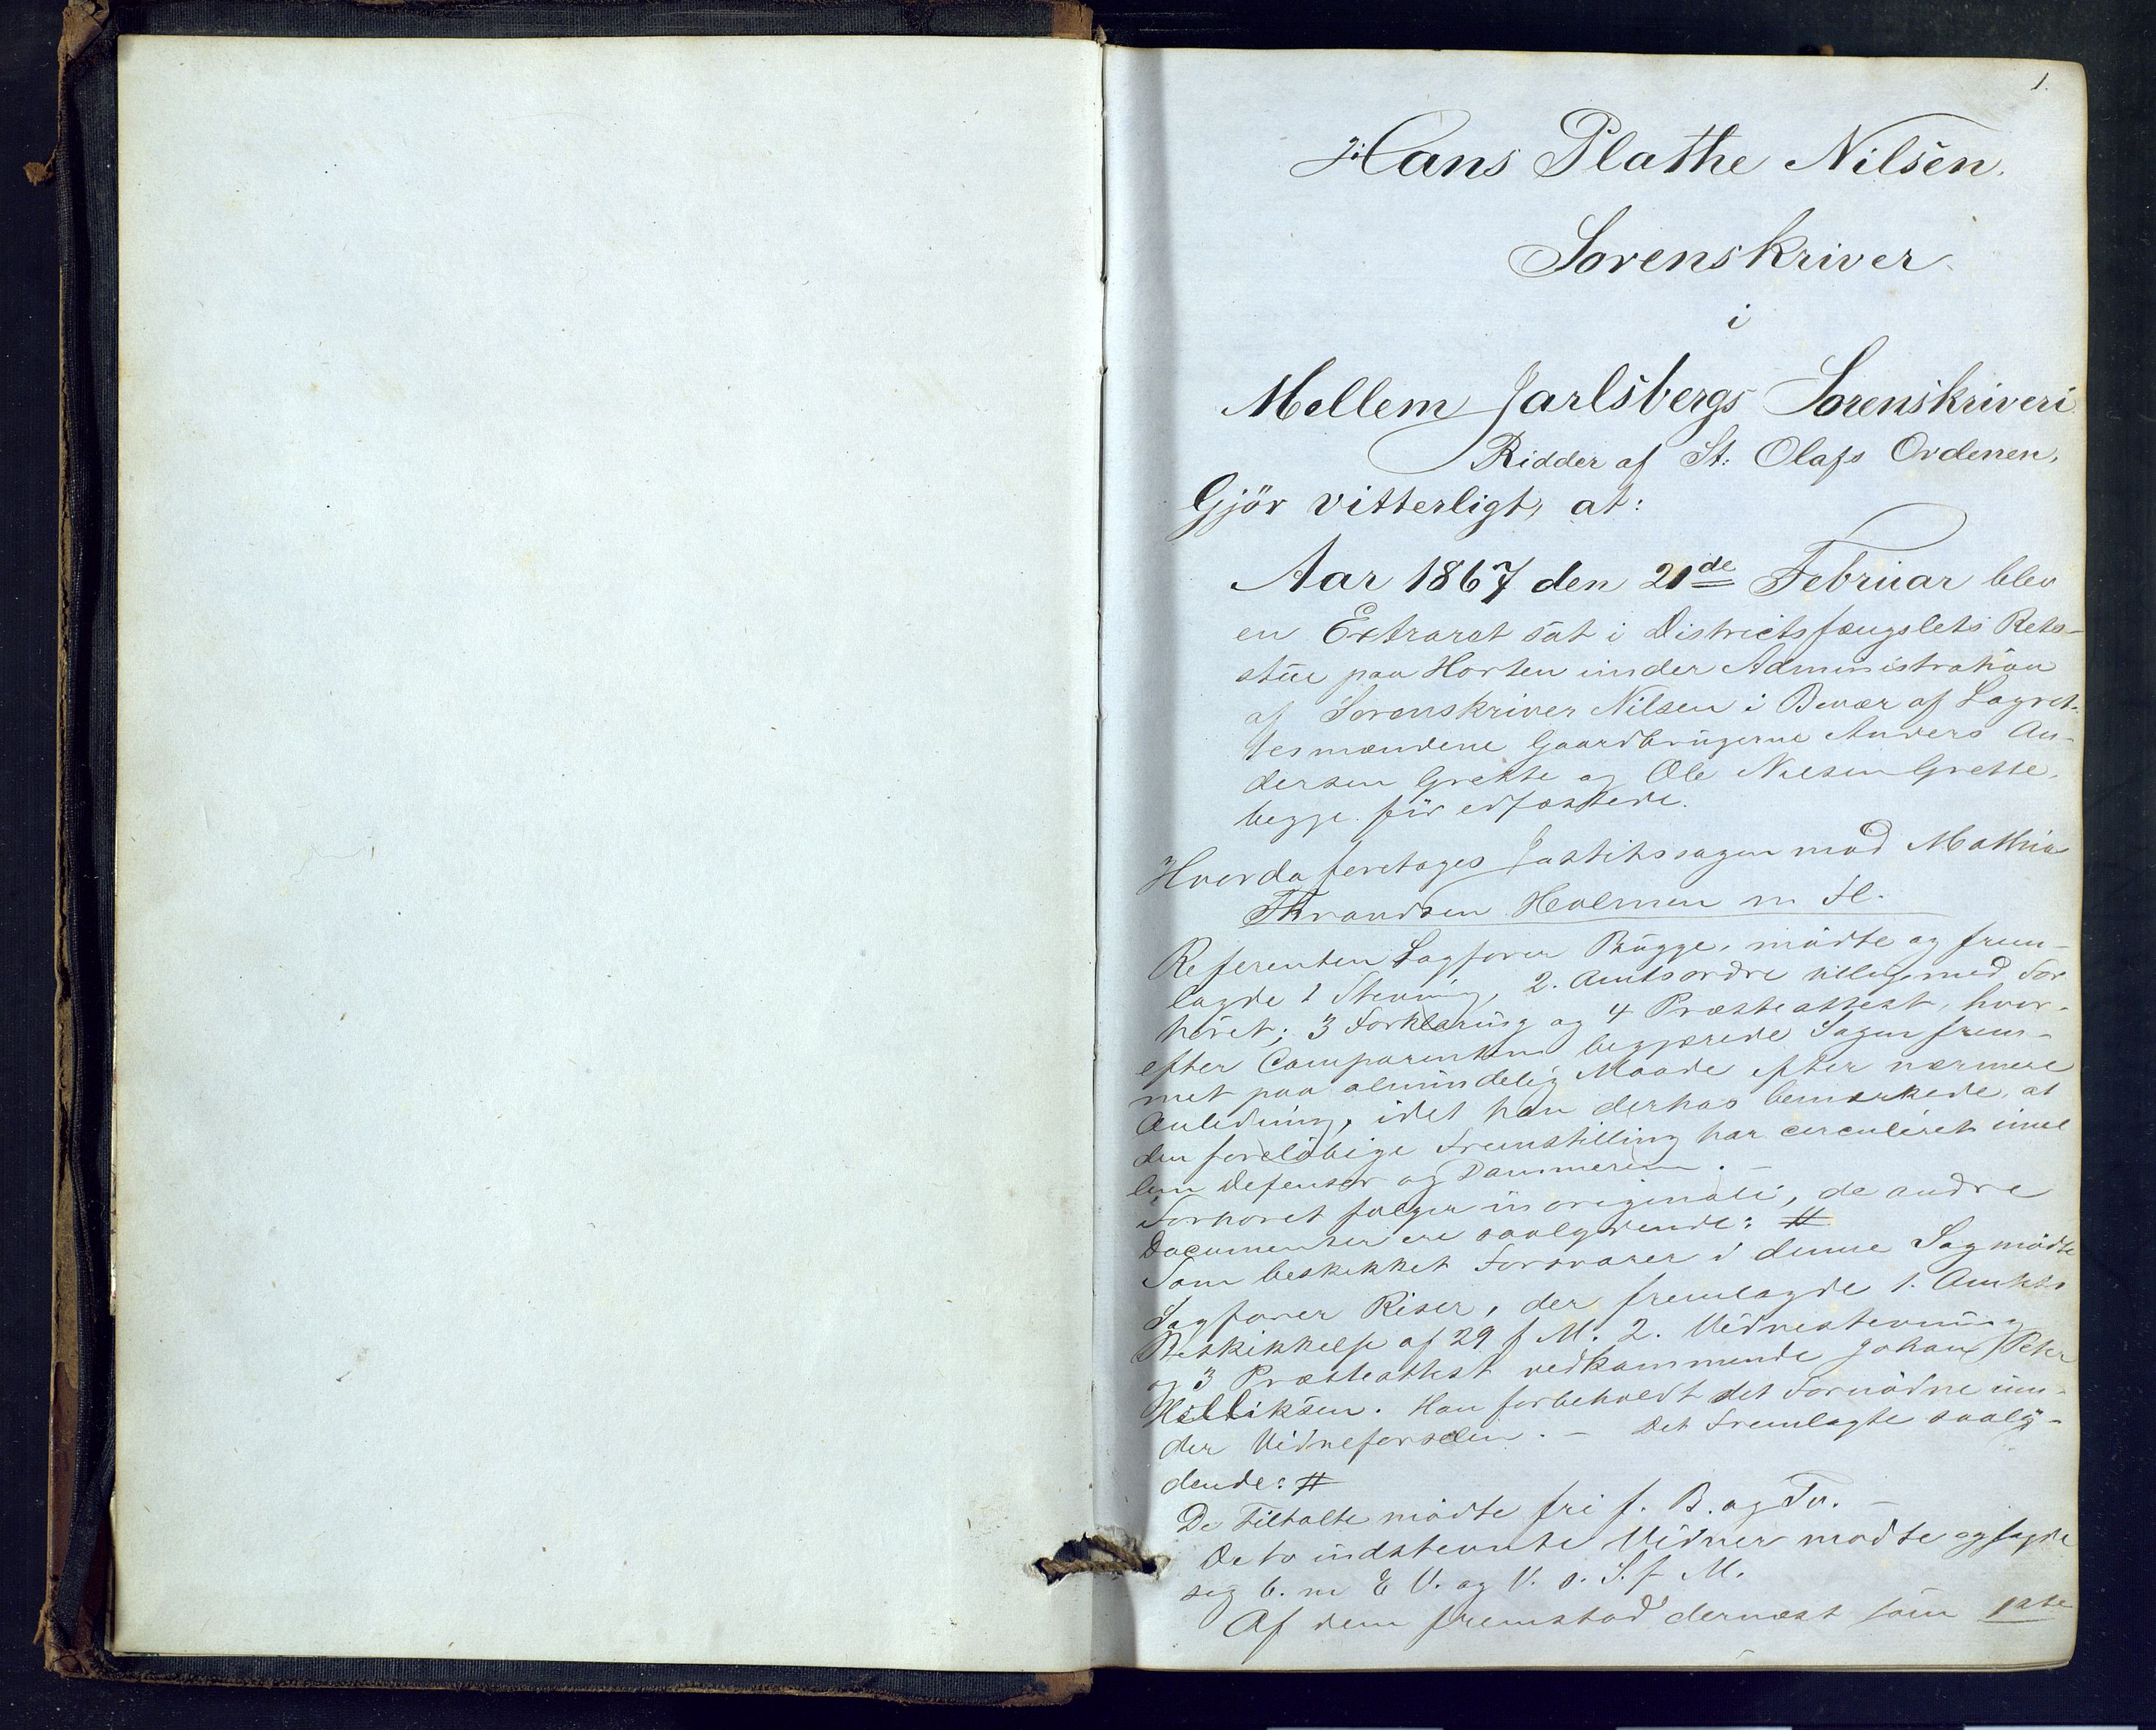 1.
Hans Plathe Nilsen.
Sorenskriver
i
Mellem Jarlsbergs Sorenskriveri
Ridder af St: Olafs Ordenen.
Gjör vitterligt, at:
Aar 1867 den 21de Februar blev
en Extraret sat i Districtsfængslets Rets-
stue paa Horten under Administration
af Sorenskriver Nilsen i Bivær af Lagret-
tesmændene Gaardbrugerne Anders An-
dersen Grette og Ole Nilsen Grette,
begge för edfæstede.
Hvorda foretages Justitssagen mod Mathia
Thrandsen Holmen m Fl.
Referenten Sagforer Bügge, mödte og frem-
lagde 1 Stevning, 2. Amtsordre tilligemed For
höret; 3 Forklaring og 4 Præsteattest, hvor-
efter Comparenten begjærede Sagen frem-
met paa almindelig Maade efter nærmere
Anledning, idet han derhos bemærkede, at
den forelöbige Fremstilling har circuleret imel
lem Defensor og Dommeren. -
Forhöret fölger in originali, de andre
Documenter ere saalydende: #
Som beskikket Forsvarer i denne Sag mödte
Sagforer Riser, der fremlagde 1. Amtets
Beskikkelse af 29 f M. 2. Vidnestevning
og 3 Præsteattest vedkommende Johan Peter
Han forbeholdt det Fornödne un-
der Vidneforselen. - Det Fremlagte saaly-
dende: #
De Tiltalte mödte fri f. B. og Tv. -
De to indstevnte Vidner mödte og sagde
sig b. m E V. og V. o. S. f M.
Af dem fremstod dernæst som 1ste